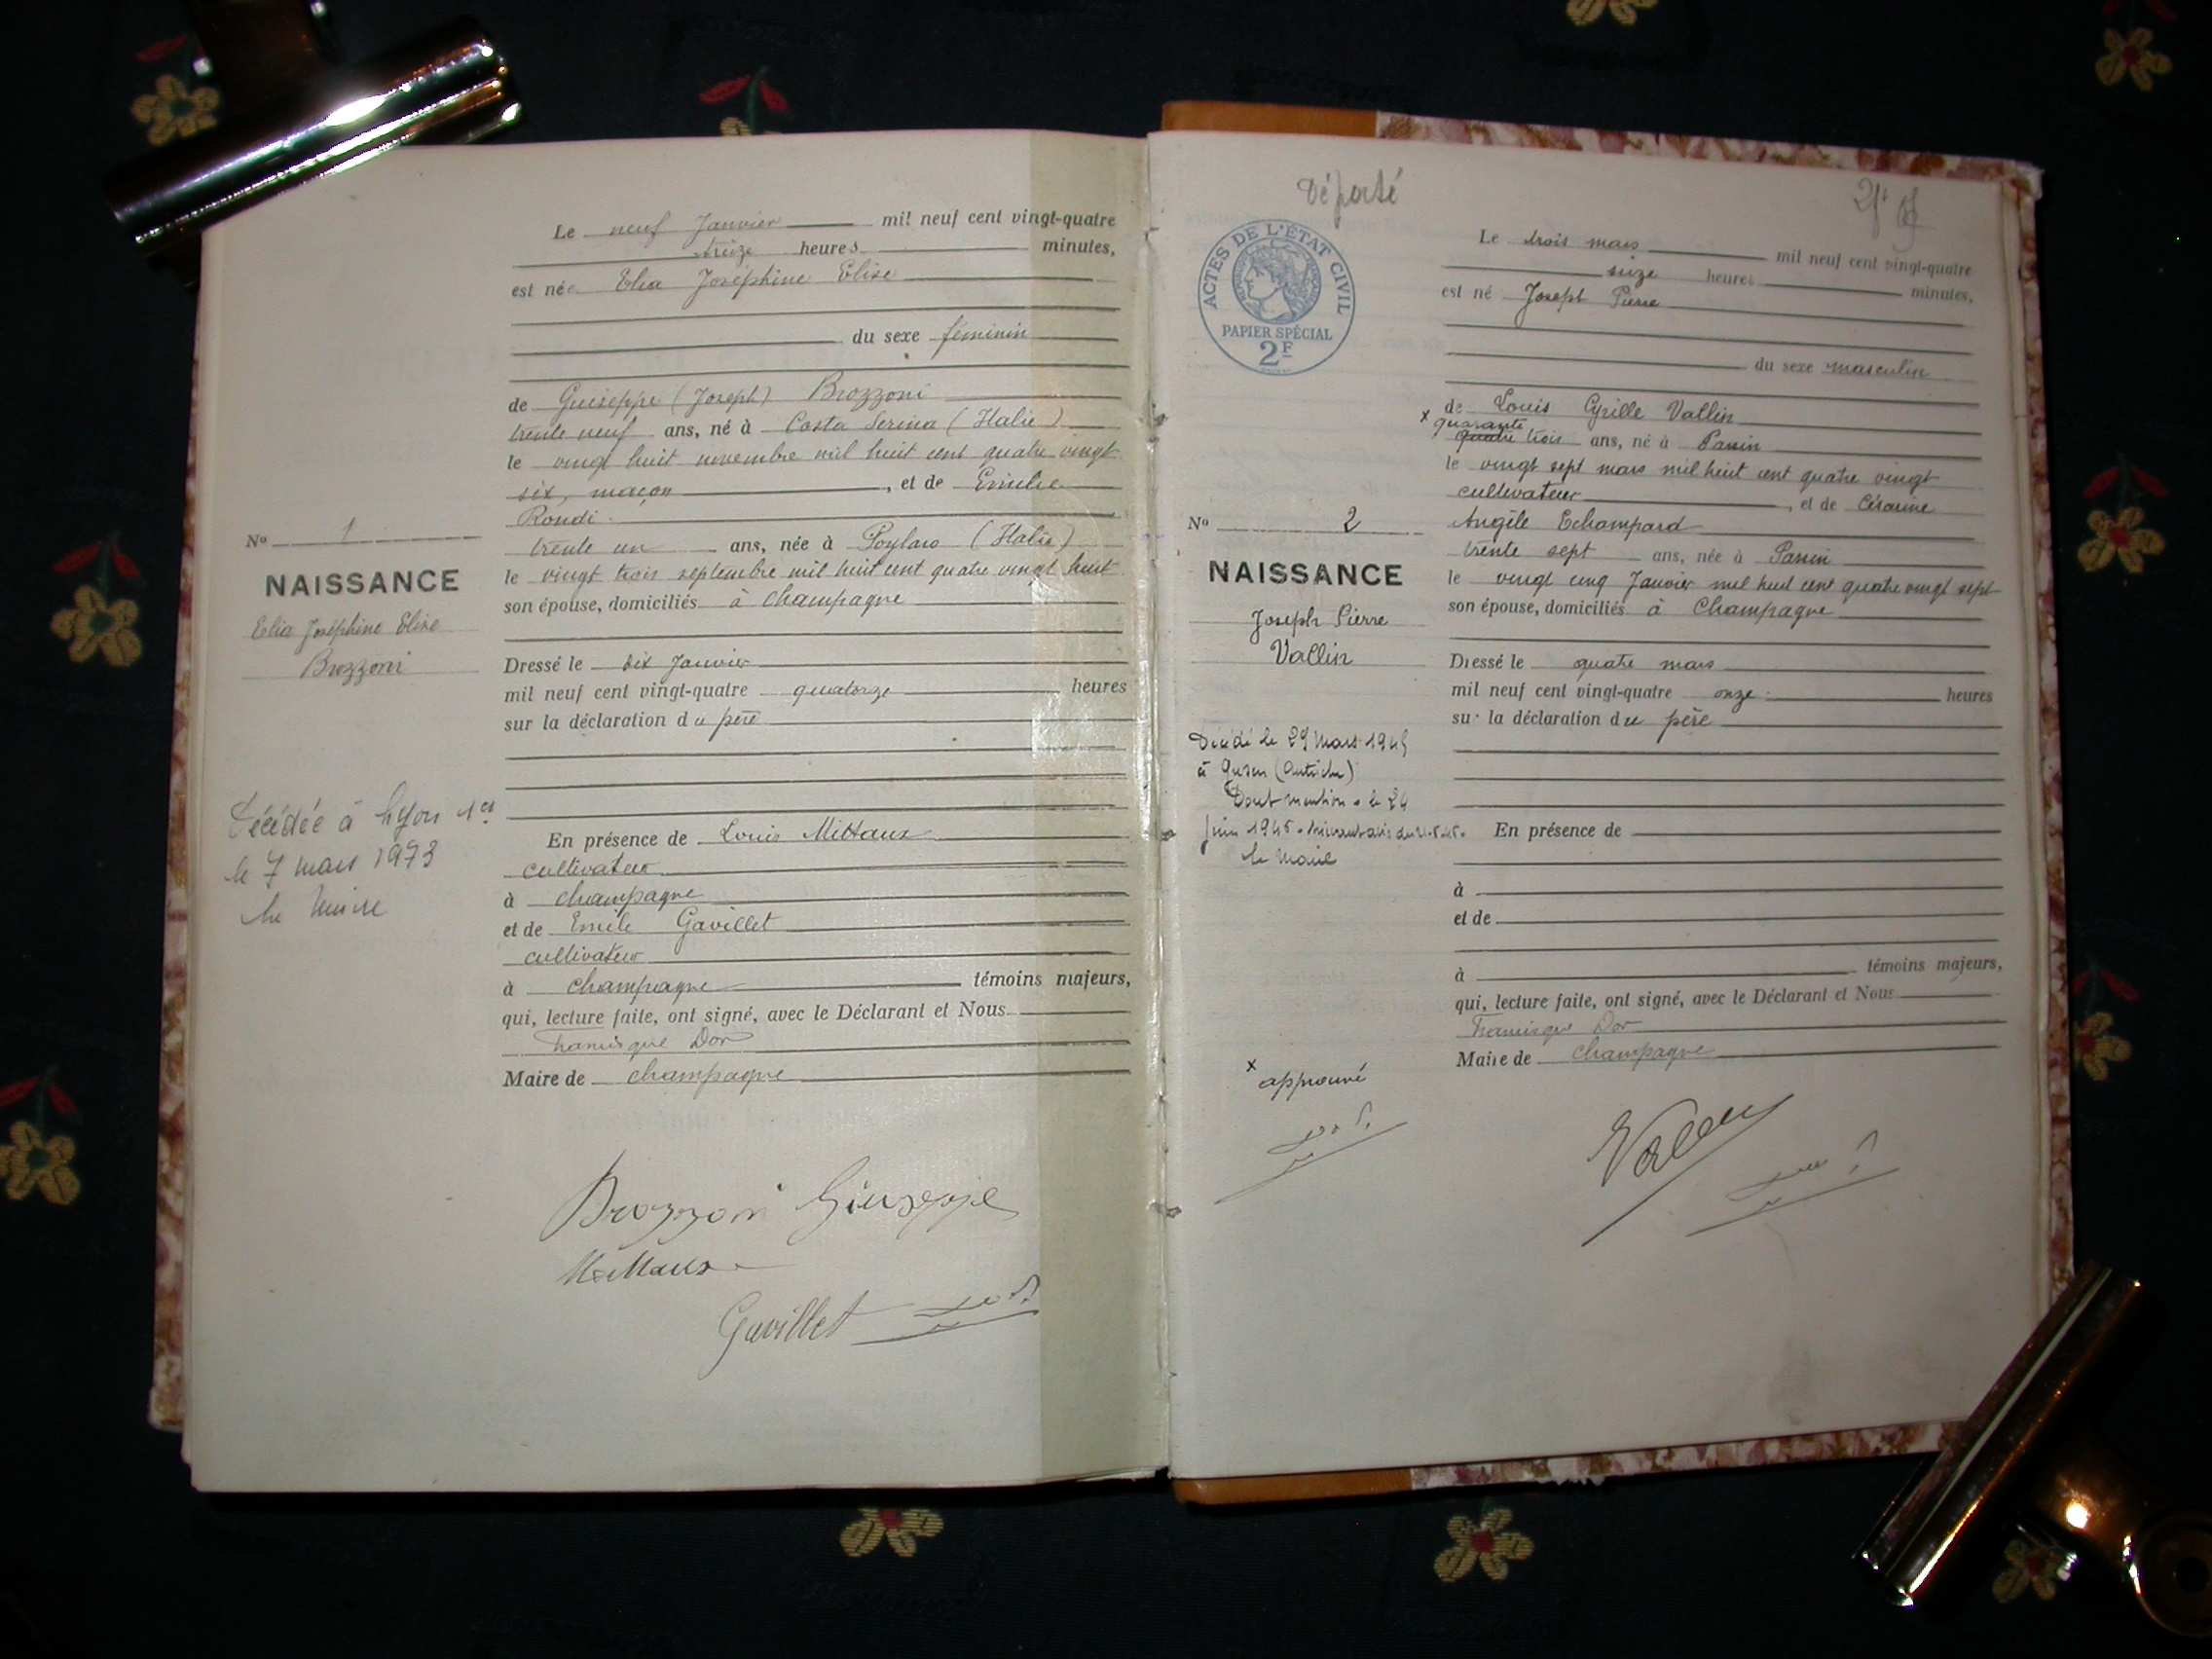 Le neuf Janvier mil neuf cent vingt-quatre
treize heures minutes,
est née Elia Joséphine Elise
du sexe féminin
de Guiseppe (Joseph) Brozzoni
trente neuf ans, né à Costa Serina (Italie)
le vingt huit novembre mil huit cent quatre vingt
six, maçon, et de Emilie
Rondi
trente un ans, née à (Italie)
le vingt trois septembre mil huit cent quatre vingt huit
son épouse, domiciliés à Champagne
Dressé le dix Janvier
mil neuf cent vingt-quatre quatorze heures
sur la déclaration du père
En présence de Louis Mittaux
cultivateur
à champagne
et de Emile Gavillet
cultivateur
à champagne témoins majeurs,
qui, lecture faite, ont signé, avec le Déclarant et Nous
Dor
Maire de champagne
No 1
NAISSANCE
Elia Joséphine Elise
Brozzoni
Décédée à Lyon 1er
le 7 mars 1973
Le Maire
Brozzoni Giuseppe
Mittaux
Gavillet
Déporté
ACTES DE L'ÉTAT CIVIL
PAPIER SPÉCIAL
2F
Le trois mars mil neuf cent vingt-quatre
seize heures minutes,
est né Joseph Pierre
du sexe masculin
de Louis Cyrille Vallin
x quarante
quatre trois ans, né à Passin
le vingt sept mars mil huit cent quatre vingt
cultivateur, et de Césarine
Angèle Echampard
trente sept ans, née à Passin
le vingt cinq Janvier mil huit cent quatre vingt sept
son épouse, domiciliés à Champagne
Dressé le quatre mars
mil neuf cent vingt-quatre onze heures
sur la déclaration du père
En présence de
à
et de
à témoins majeurs,
qui, lecture faite, ont signé, avec le Déclarant et Nous
Dor
Maire de Champagne
No 2
NAISSANCE
Joseph Pierre
Vallin
Décédé le 29 Mars 1945
à Gusen (Autriche)
Dont mention le 24
Juin 1945
le Maire
x
approuvé
Vallin